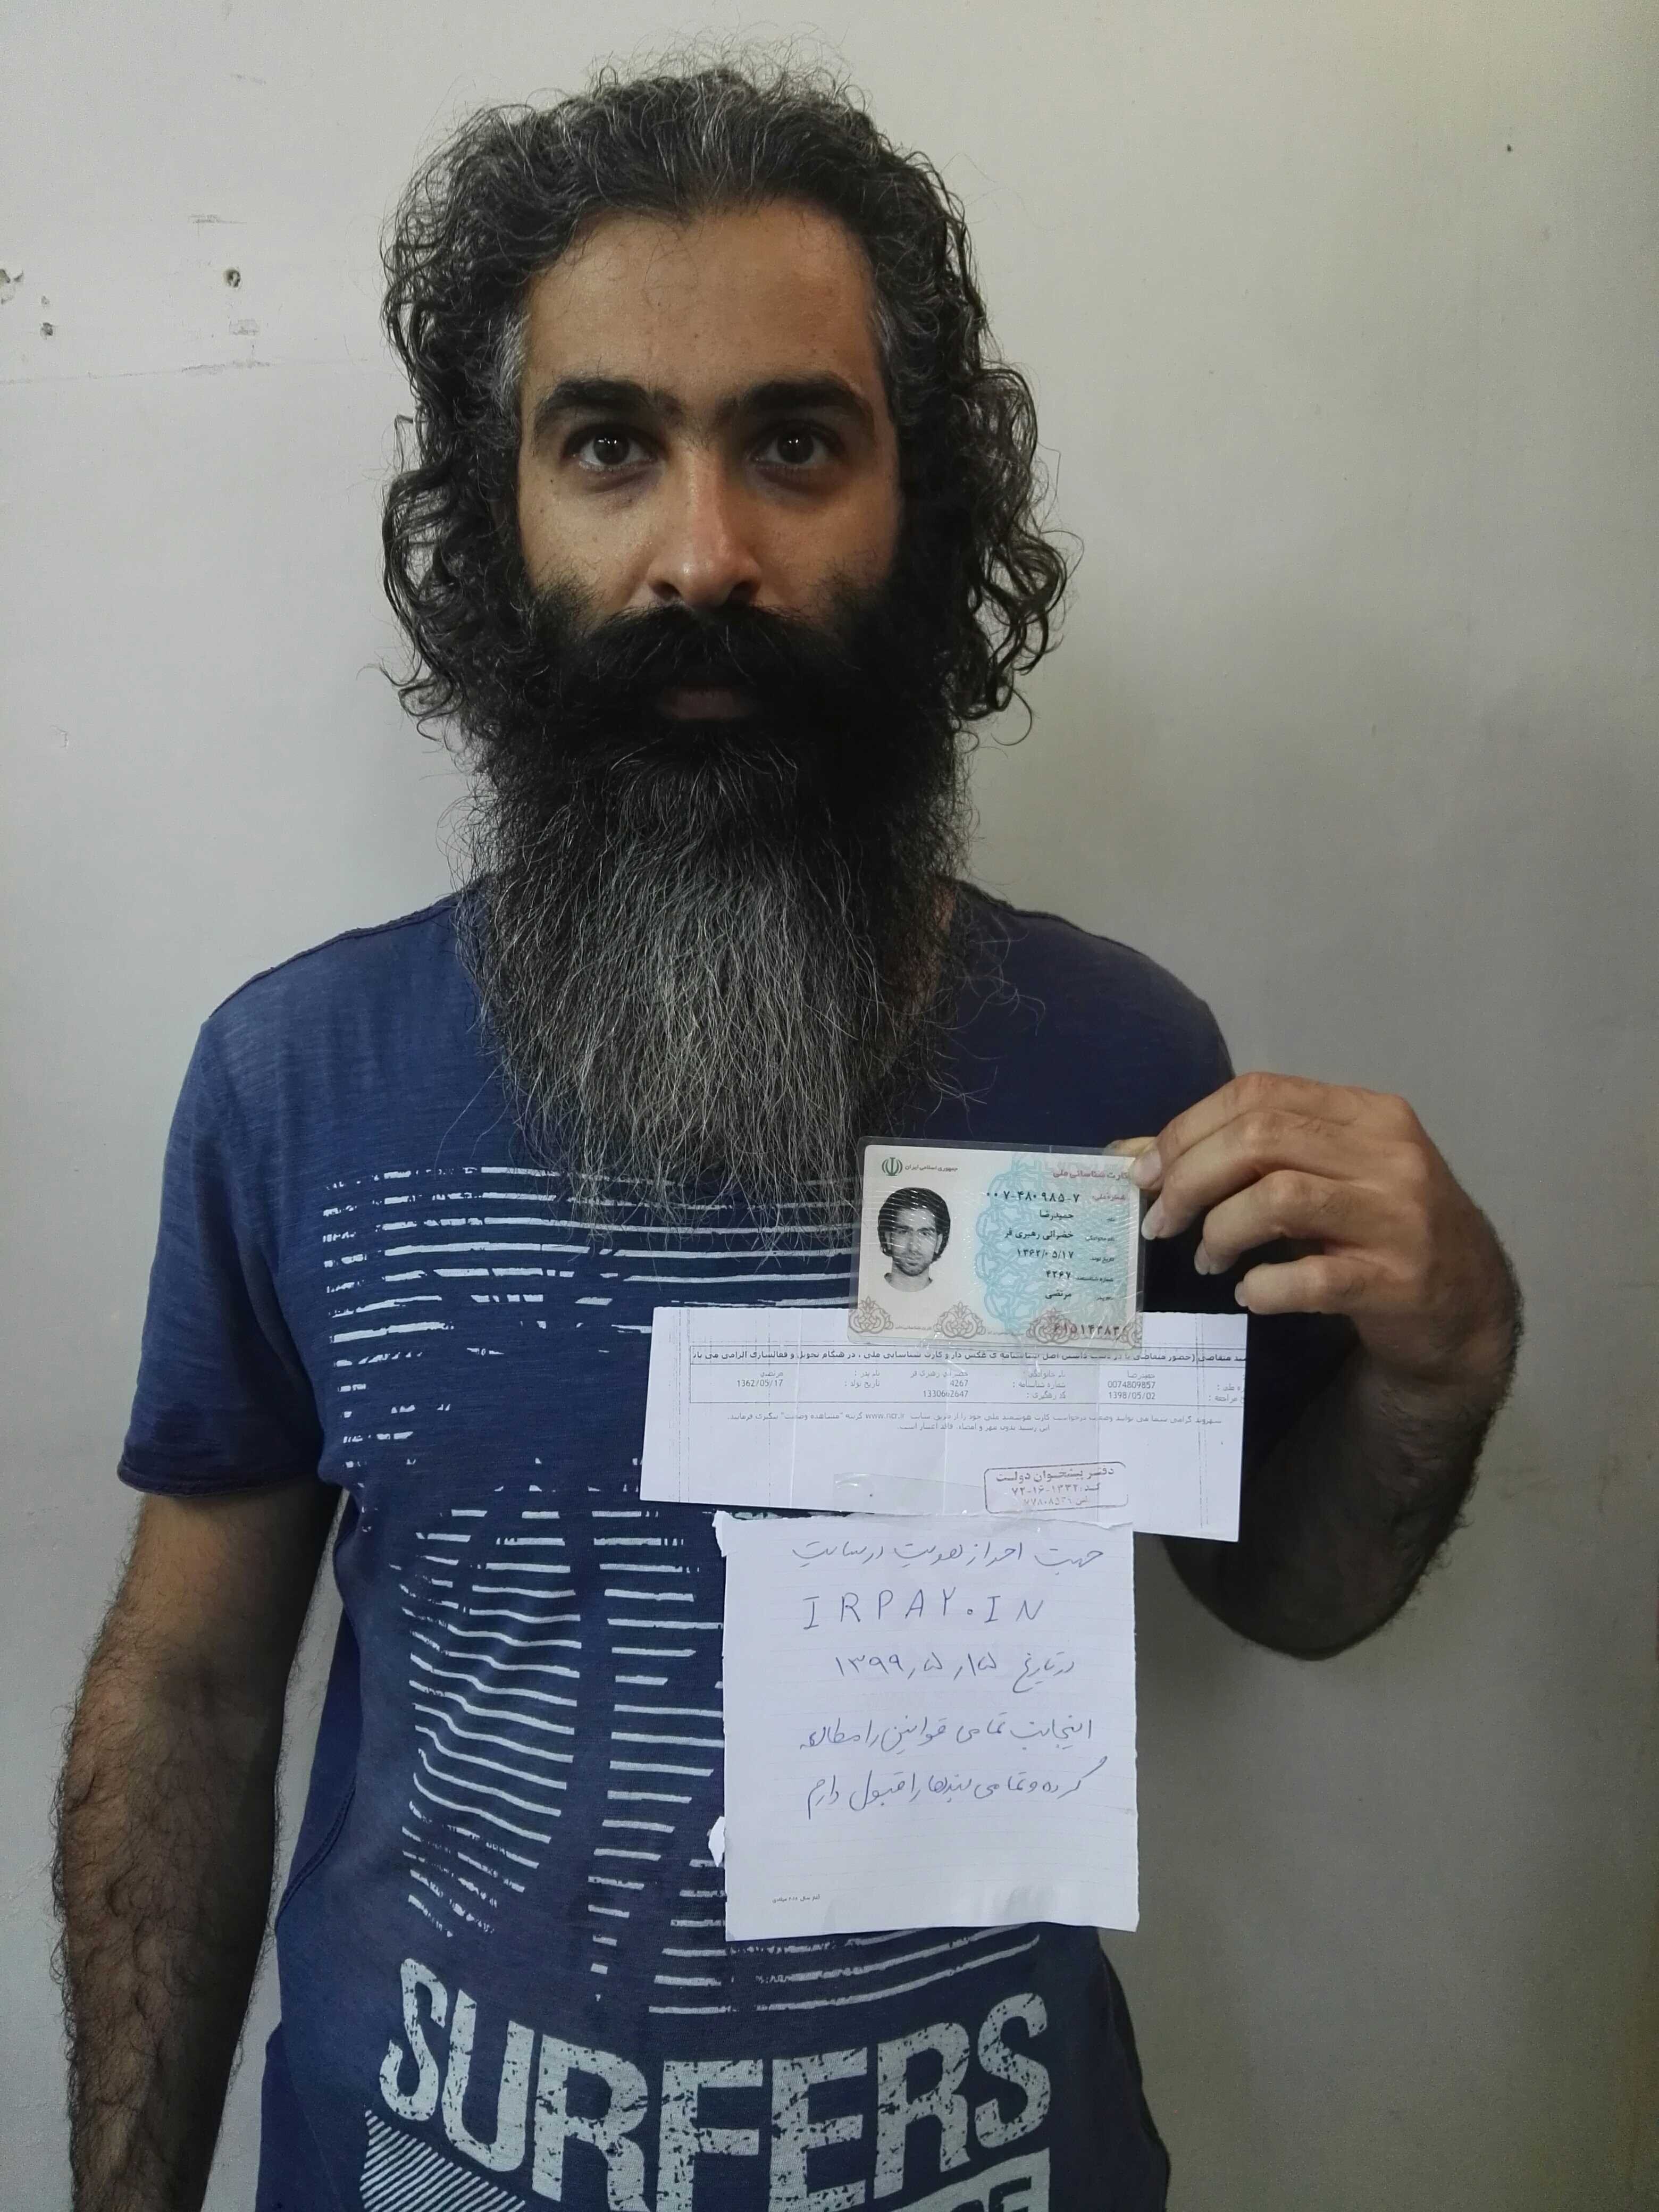 جمهوری اسلامی ایران
کارت شناسائی ملی
شماره ملی: ۰۰۷-۴۸۰۹۸۵-۷
نام: حمیدرضا
نام خانوادگی: خضرائی رهبری فر
تاریخ تولد: ۱۳۶۲/۰۵/۱۷
شماره شناسنامه: ۴۲۶۷
نام پدر: مرتضی
متقاضی (حضور متقاضی با در دست داشتن اصل شناسنامه ی عکس دار و کارت شناسایی ملی ، در هنگام تحویل و فعالسازی الزامی می باشد
حمیدرضا نام خانوادگی : خضرائی رهبری فر نام پدر : مرتضی
0074809857 شماره شناسنامه : 4267 تاریخ تولد : 1362/05/17
1398/05/02 کد رهگیری : 1330662647
شهروند گرامی شما می توانید وضعیت درخواست کارت هوشمند ملی خود را از طریق سایت www.ncr.ir گزینه "مشاهده وضعیت" پیگیری فرمایید.
این رسید بدون مهر و امضاء، فاقد اعتبار است
دفتر پیشخوان دولت
کد: ۷۲-۱۶-۱۳۳۲
جهت احراز هویت در سایت
IRPAY.IN
در تاریخ ۱۵ر۵ر۱۳۹۹
اینجانب تمامی قوانین را مطالعه
کرده و تمامی بندها را قبول دارم
SURFERS